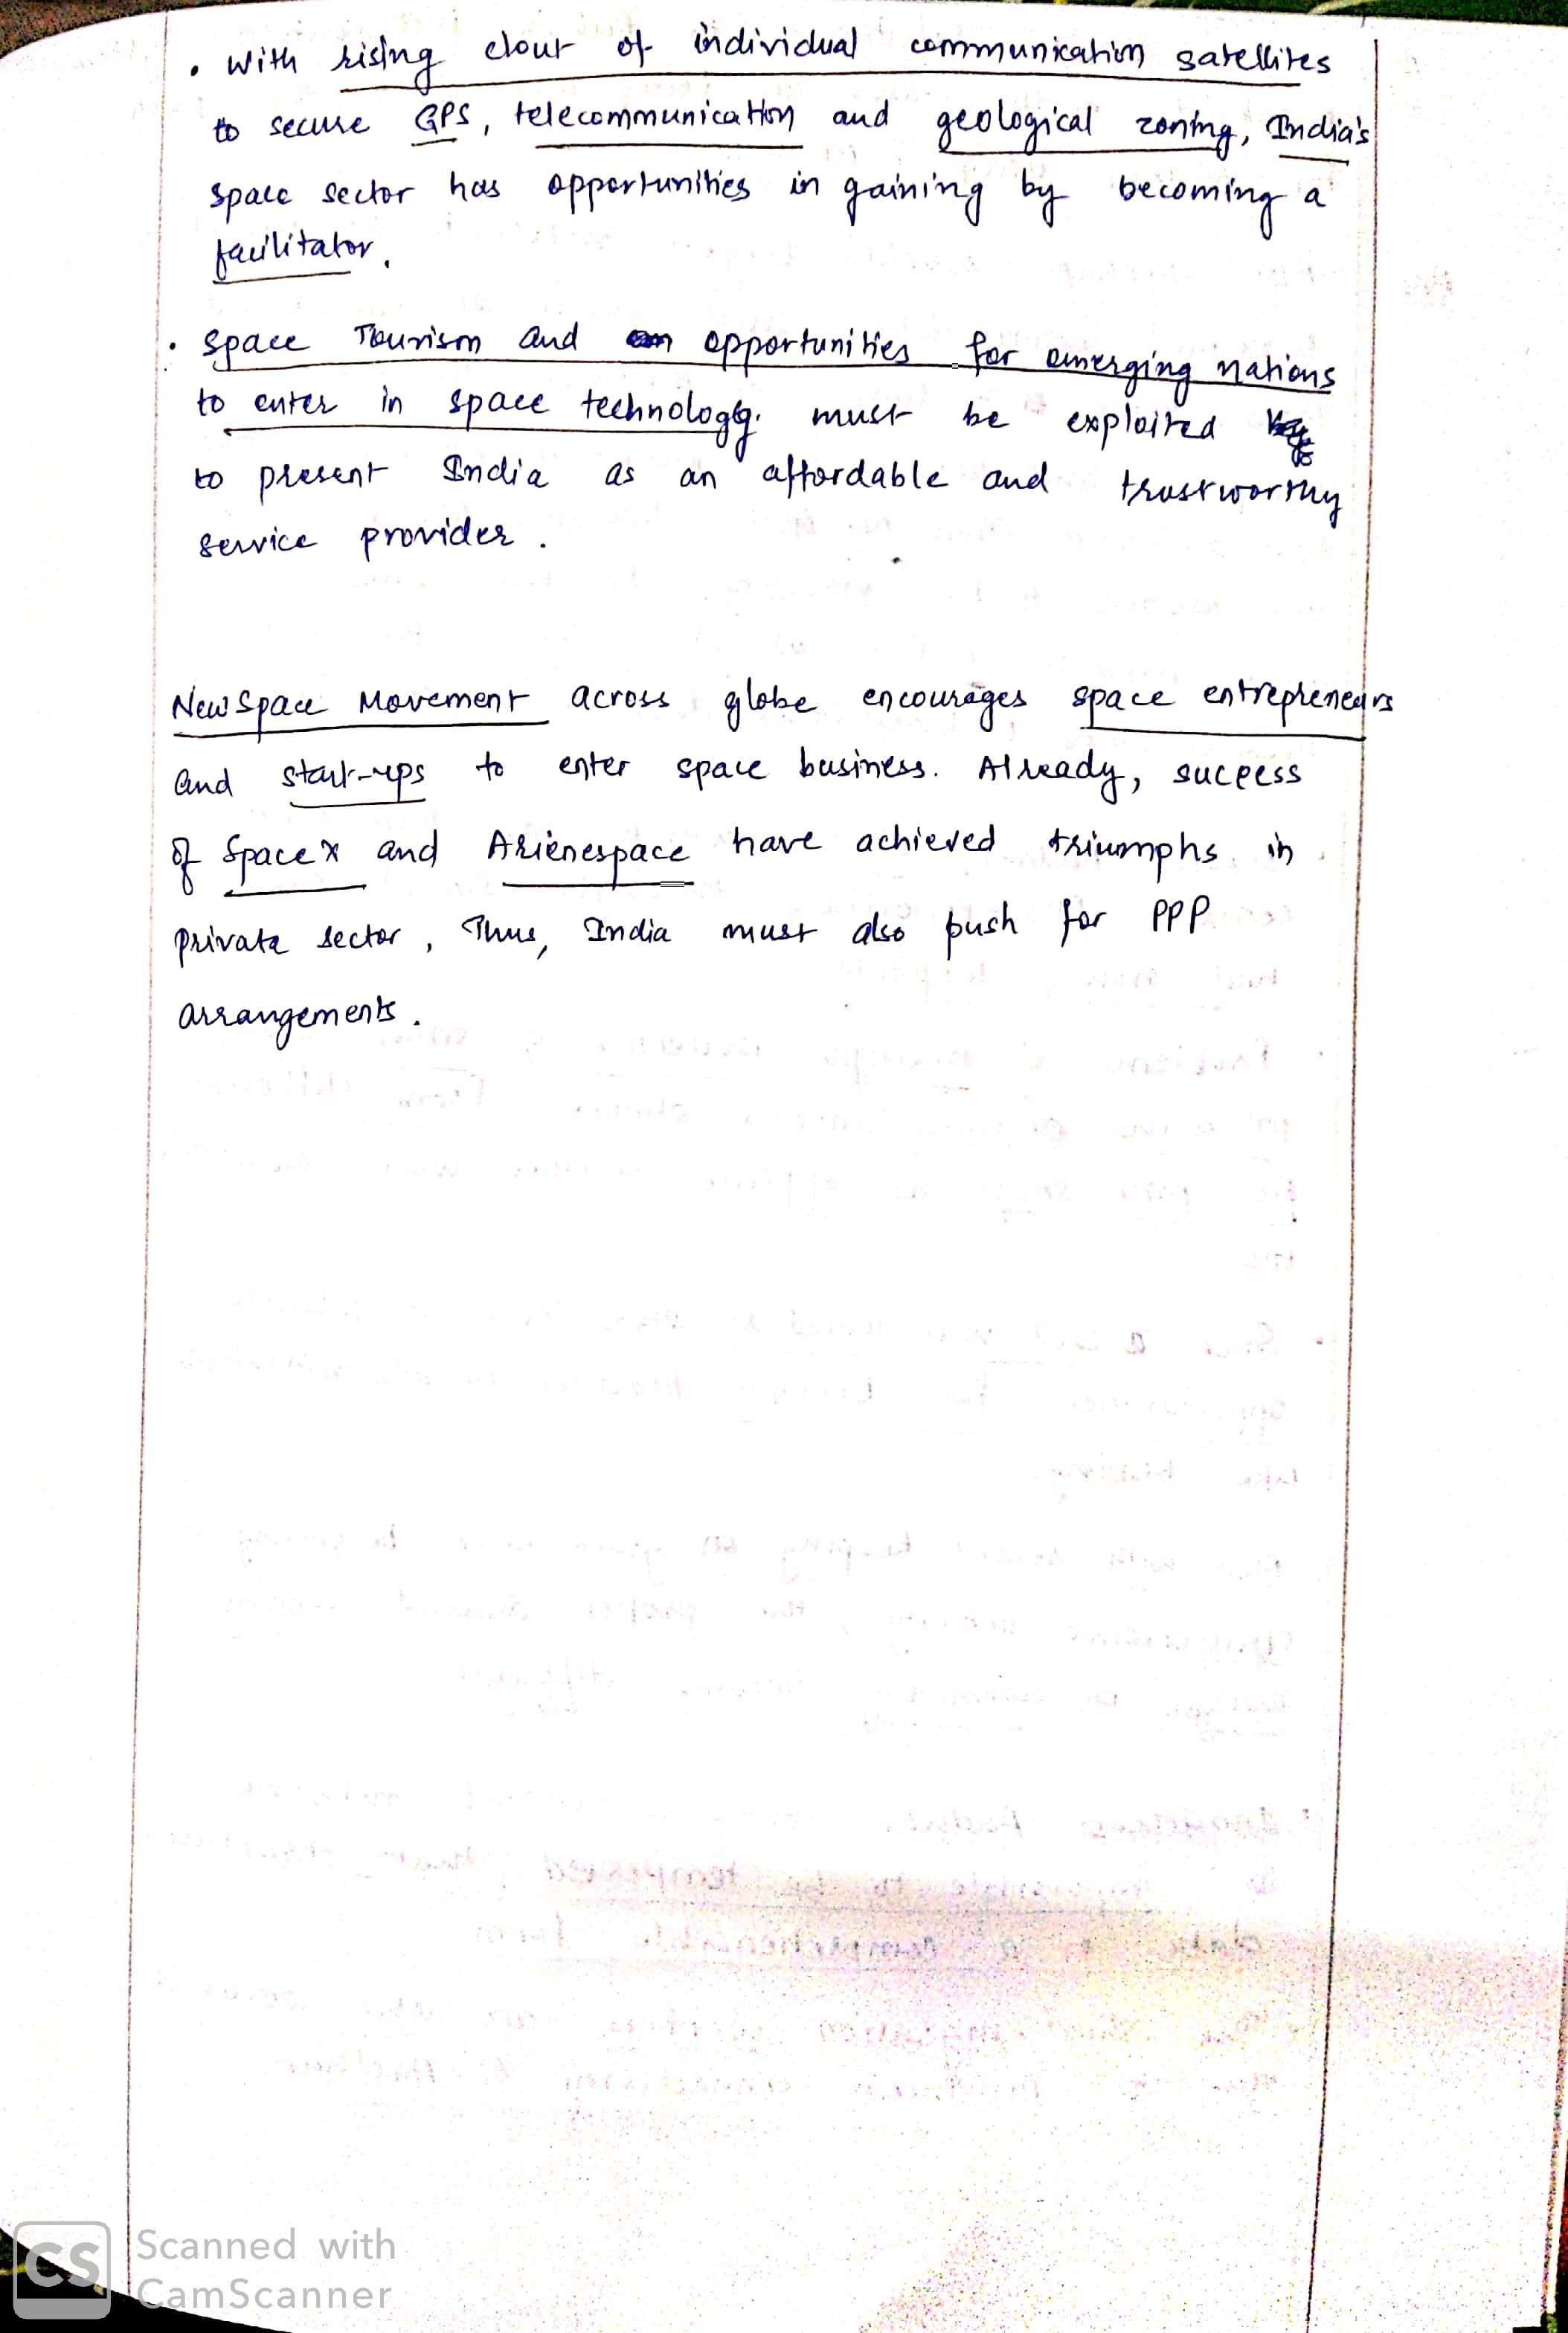 • With rising clout of individual communication satellites
to secure GPS, telecommunication and geological zoning, India's
space sector has opportunities in gaining by becoming a
facilitator.
• Space Tourism and opportunities for emerging nations
to enter in space technology. must be exploited
to present India as an affordable and trustworthy
service provider.
NewSpace Movement across globe encourages space entrepreneurs
and start-ups to enter space business. Already, success
of SpaceX and Arienespace have achieved triumphs in
private sector, Thus, India must also push for PPP
arrangements.
CS Scanned with
CamScanner